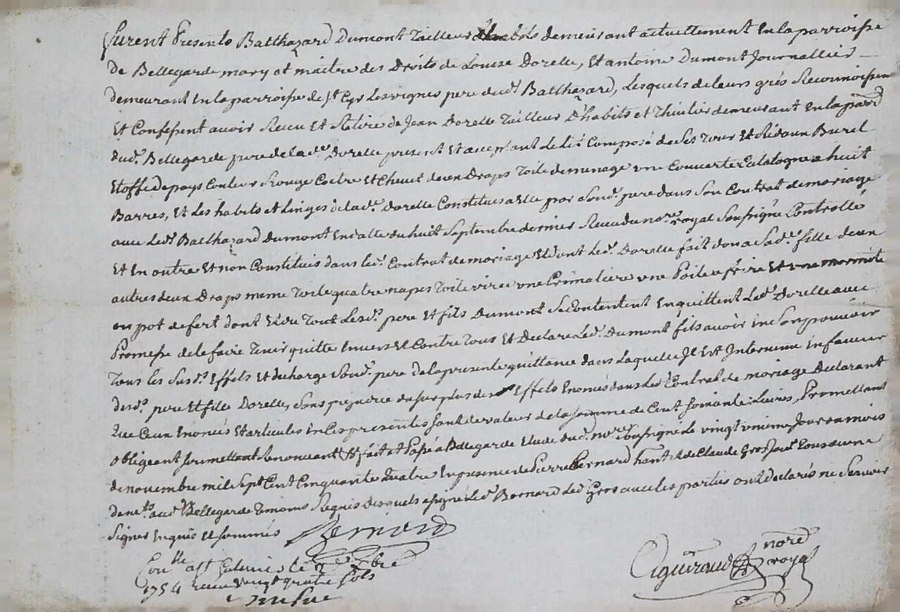 Furent Presents Balthazard Dumont Tailleur d'habits demeurant actuellement En la parroisse
de Bellegarde mary et maitre des Droits de Louise Dorelle, Et antoine Dumont Journallier
demeurant En la parroisse de St Cyr Les vignes pere dud. Balthazard, Lesquels de leurs grés Reconnoissent
Et Confessent avoir Receu Et Retiré de Jean Dorelle Tailleur D'habits et demeurant En la parr.
dud. Bellegarde pere de la de. Dorelle present Et acceptant Le lit Composé de Ses Tour Et Rideaux Burel
Etoffe de pays Couleur Rouge Coitre Et Chevet deux Draps Toile de menage une Couverte Catalogne a huit
Barres, Et Les habits et Linges de lad. Dorelle Constitués a Elle par Sond. pere dans Son Contrat de mariage
avec Led. Balthazard Dumont En datte du huit Septembre dernier Receu du nore. royal Soussigné Controllé
Et En outre Et non Constitués dans led. Contrat de mariage Et dont Led. Dorelle fait don a Sad. fille deux
autres deux Draps meme Toile quatre napes Toile une Poile a frire Et une marmite
ou pot de fert dont Et du Tout Lesd. pere Et fils Dumont Se Contentent En quittent Led. Dorelle avec
Promesse de le faire Tenir quitte Envers Et Contre Tous Et Declare Led. Dumont fils avoir En Son pouvoir
Tous les Susd. Effets Et decharge Sond. pere de la presente quittance dans Laquelle Il Est Intervenu En faveur
desd. pere Et fille Dorelle, Sans prejudice du Surplus des Effets Enoncés dans Led. Contrat de mariage Declarant
que Ceux Enoncés Et articulés En Ces presentes Sont de valeur de la Somme de Cent Soixante Livres, Promettant
obligeant Soumettant Renonceant &c fait et Passé a Bellegarde Etude dud. nore. Soussigné Le vingt unieme Jour du mois
de novembre mil Sept Cent Cinquante quatre En presence de Pierre Bernard et de Claude Gros
aud. Bellegarde Temoins Requis Desquels a Signé Led. Bernard Led. Gros avec les parties ont declarés ne Scavoir
Signer Enquis Et Sommés
Bernard
Conlle a St Galmier Le 9bre
1754 Receu vingt quatre Sols
Aguiraud nore royal